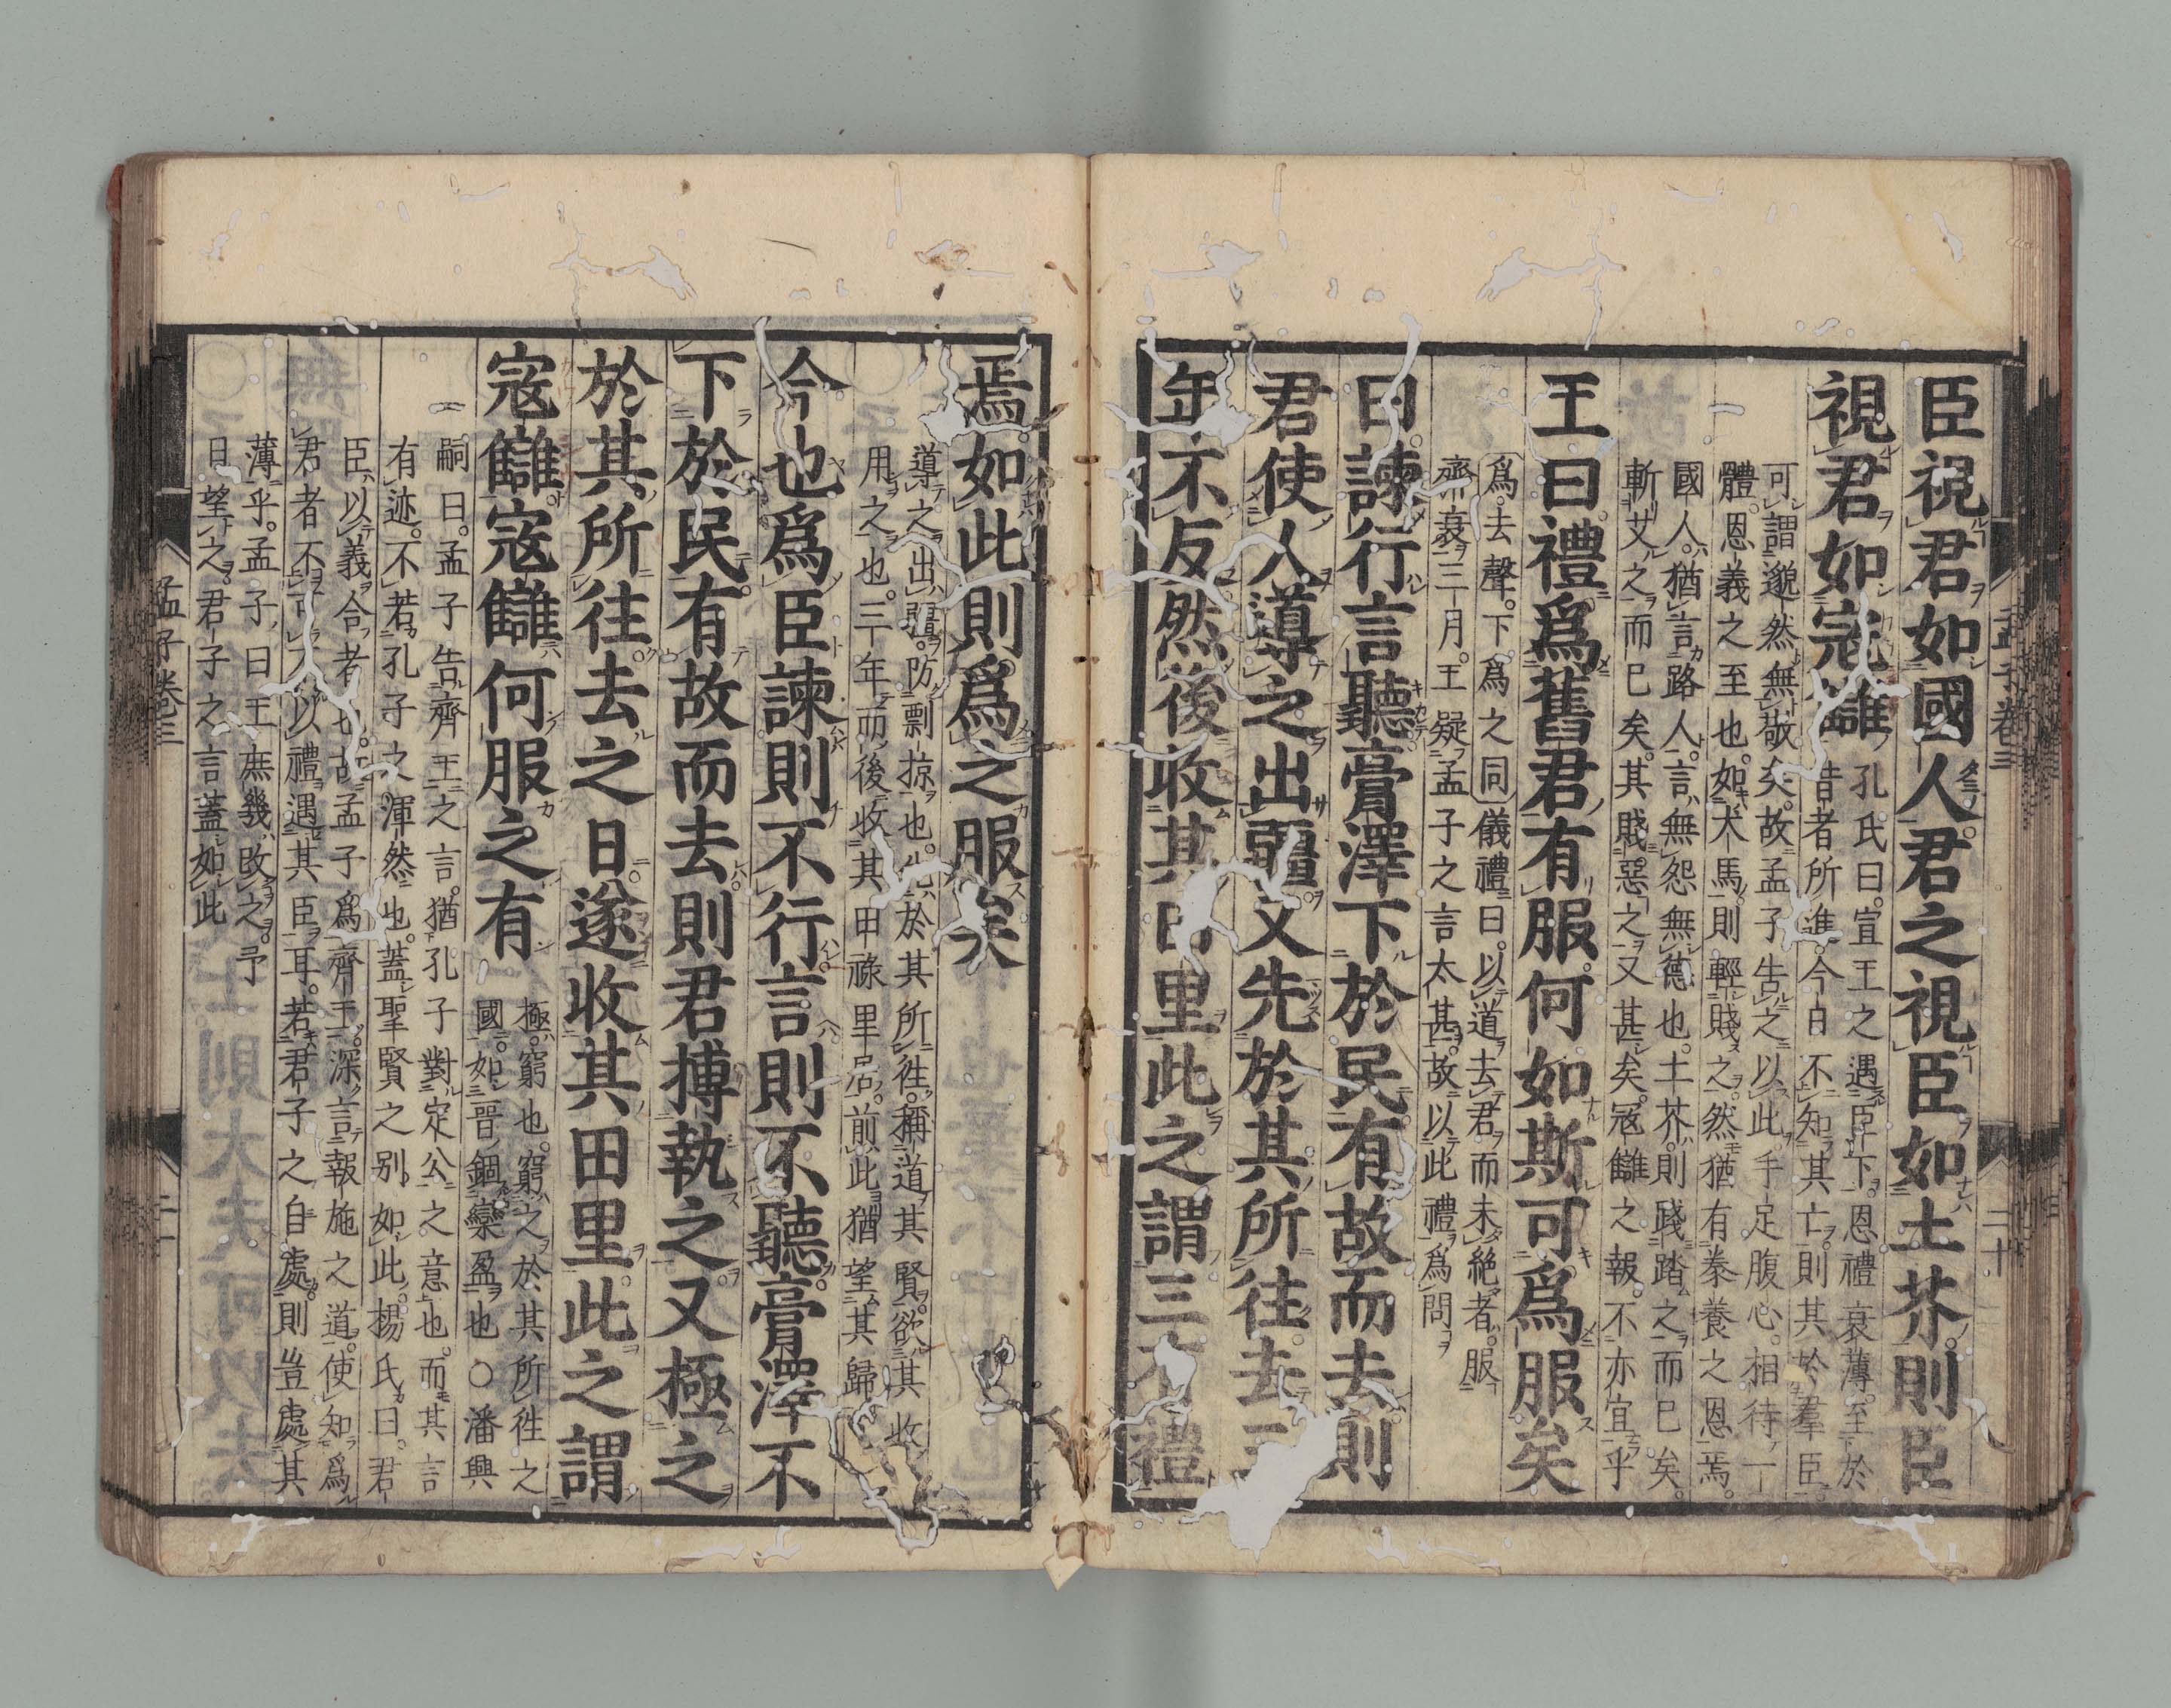 臣視君如國人君之視臣如土芥則臣
視君如寇讎
孔氏曰宣王之遇臣下恩禮衰薄至於
昔者所進今日不知其亡則其於羣臣
可謂邈然無敬矣故孟子告之以此手足腹心相待一
體恩義之至也如犬馬則輕賤之然猶有豢養之恩焉
國人猶言路人言無怨無德也土芥則踐踏之而已矣
斬艾之而已矣其賤惡之又甚矣寇讎之報不亦宜乎
王曰禮爲舊君有服何如斯可爲服矣
爲去聲下爲之同儀禮曰以道去君而未絶者服
齊衰三月王疑孟子之言太甚故以此禮爲問
曰諫行言聽膏澤下於民有故而去則
君使人導之出疆又先於其所往去三
年不反然後收其田里此之謂三有禮
焉如此則爲之服矣
導之出疆防剽掠也先於其所徃稱道其賢欲其收
用之也三年而後收其田祿里居前此猶望其歸
今也爲臣諫則不行言則不聽膏澤不
下於民有故而去則君搏執之又極之
於其所往去之日遂收其田里此之謂
寇讎寇讎何服之有
極窮也窮之於其所徃之
國如晉錮欒盈也○潘興
嗣曰孟子告齊王之言猶孔子對定公之意也而其言
有迹不若孔子之渾然也蓋聖賢之别如此楊氏曰君
臣以義合者也故孟子爲齊王深言報施之道使知爲
君者不可不以禮遇其臣耳若君子之自處則豈處其
薄乎孟子曰王庶幾改之予
日望之君子之言蓋如此
孟子卷三
二十
孟子卷三